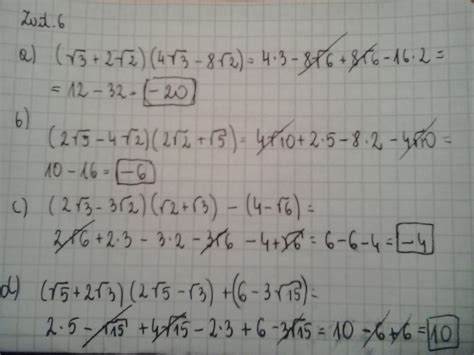 Zad. 6
a) (√3 + 2√2)(4√3 - 8√2) = 4·3 - 8√6 + 8√6 - 16·2 =
= 12 - 32 = -20
b)
(2√5 - 4√2)(2√2 + √5) = 4√10 + 2·5 - 8·2 - 4√10 =
10 - 16 = -6
c) (2√3 - 3√2)(√2 + √3) - (4 - √6) =
2√6 + 2·3 - 3·2 - 3√6 - 4 + √6 = 6 - 6 - 4 = -4
d) (√5 + 2√3)(2√5 - √3) + (6 - 3√15) =
2·5 - √15 + 4√15 - 2·3 + 6 - 3√15 = 10 - 6 + 6 = 10